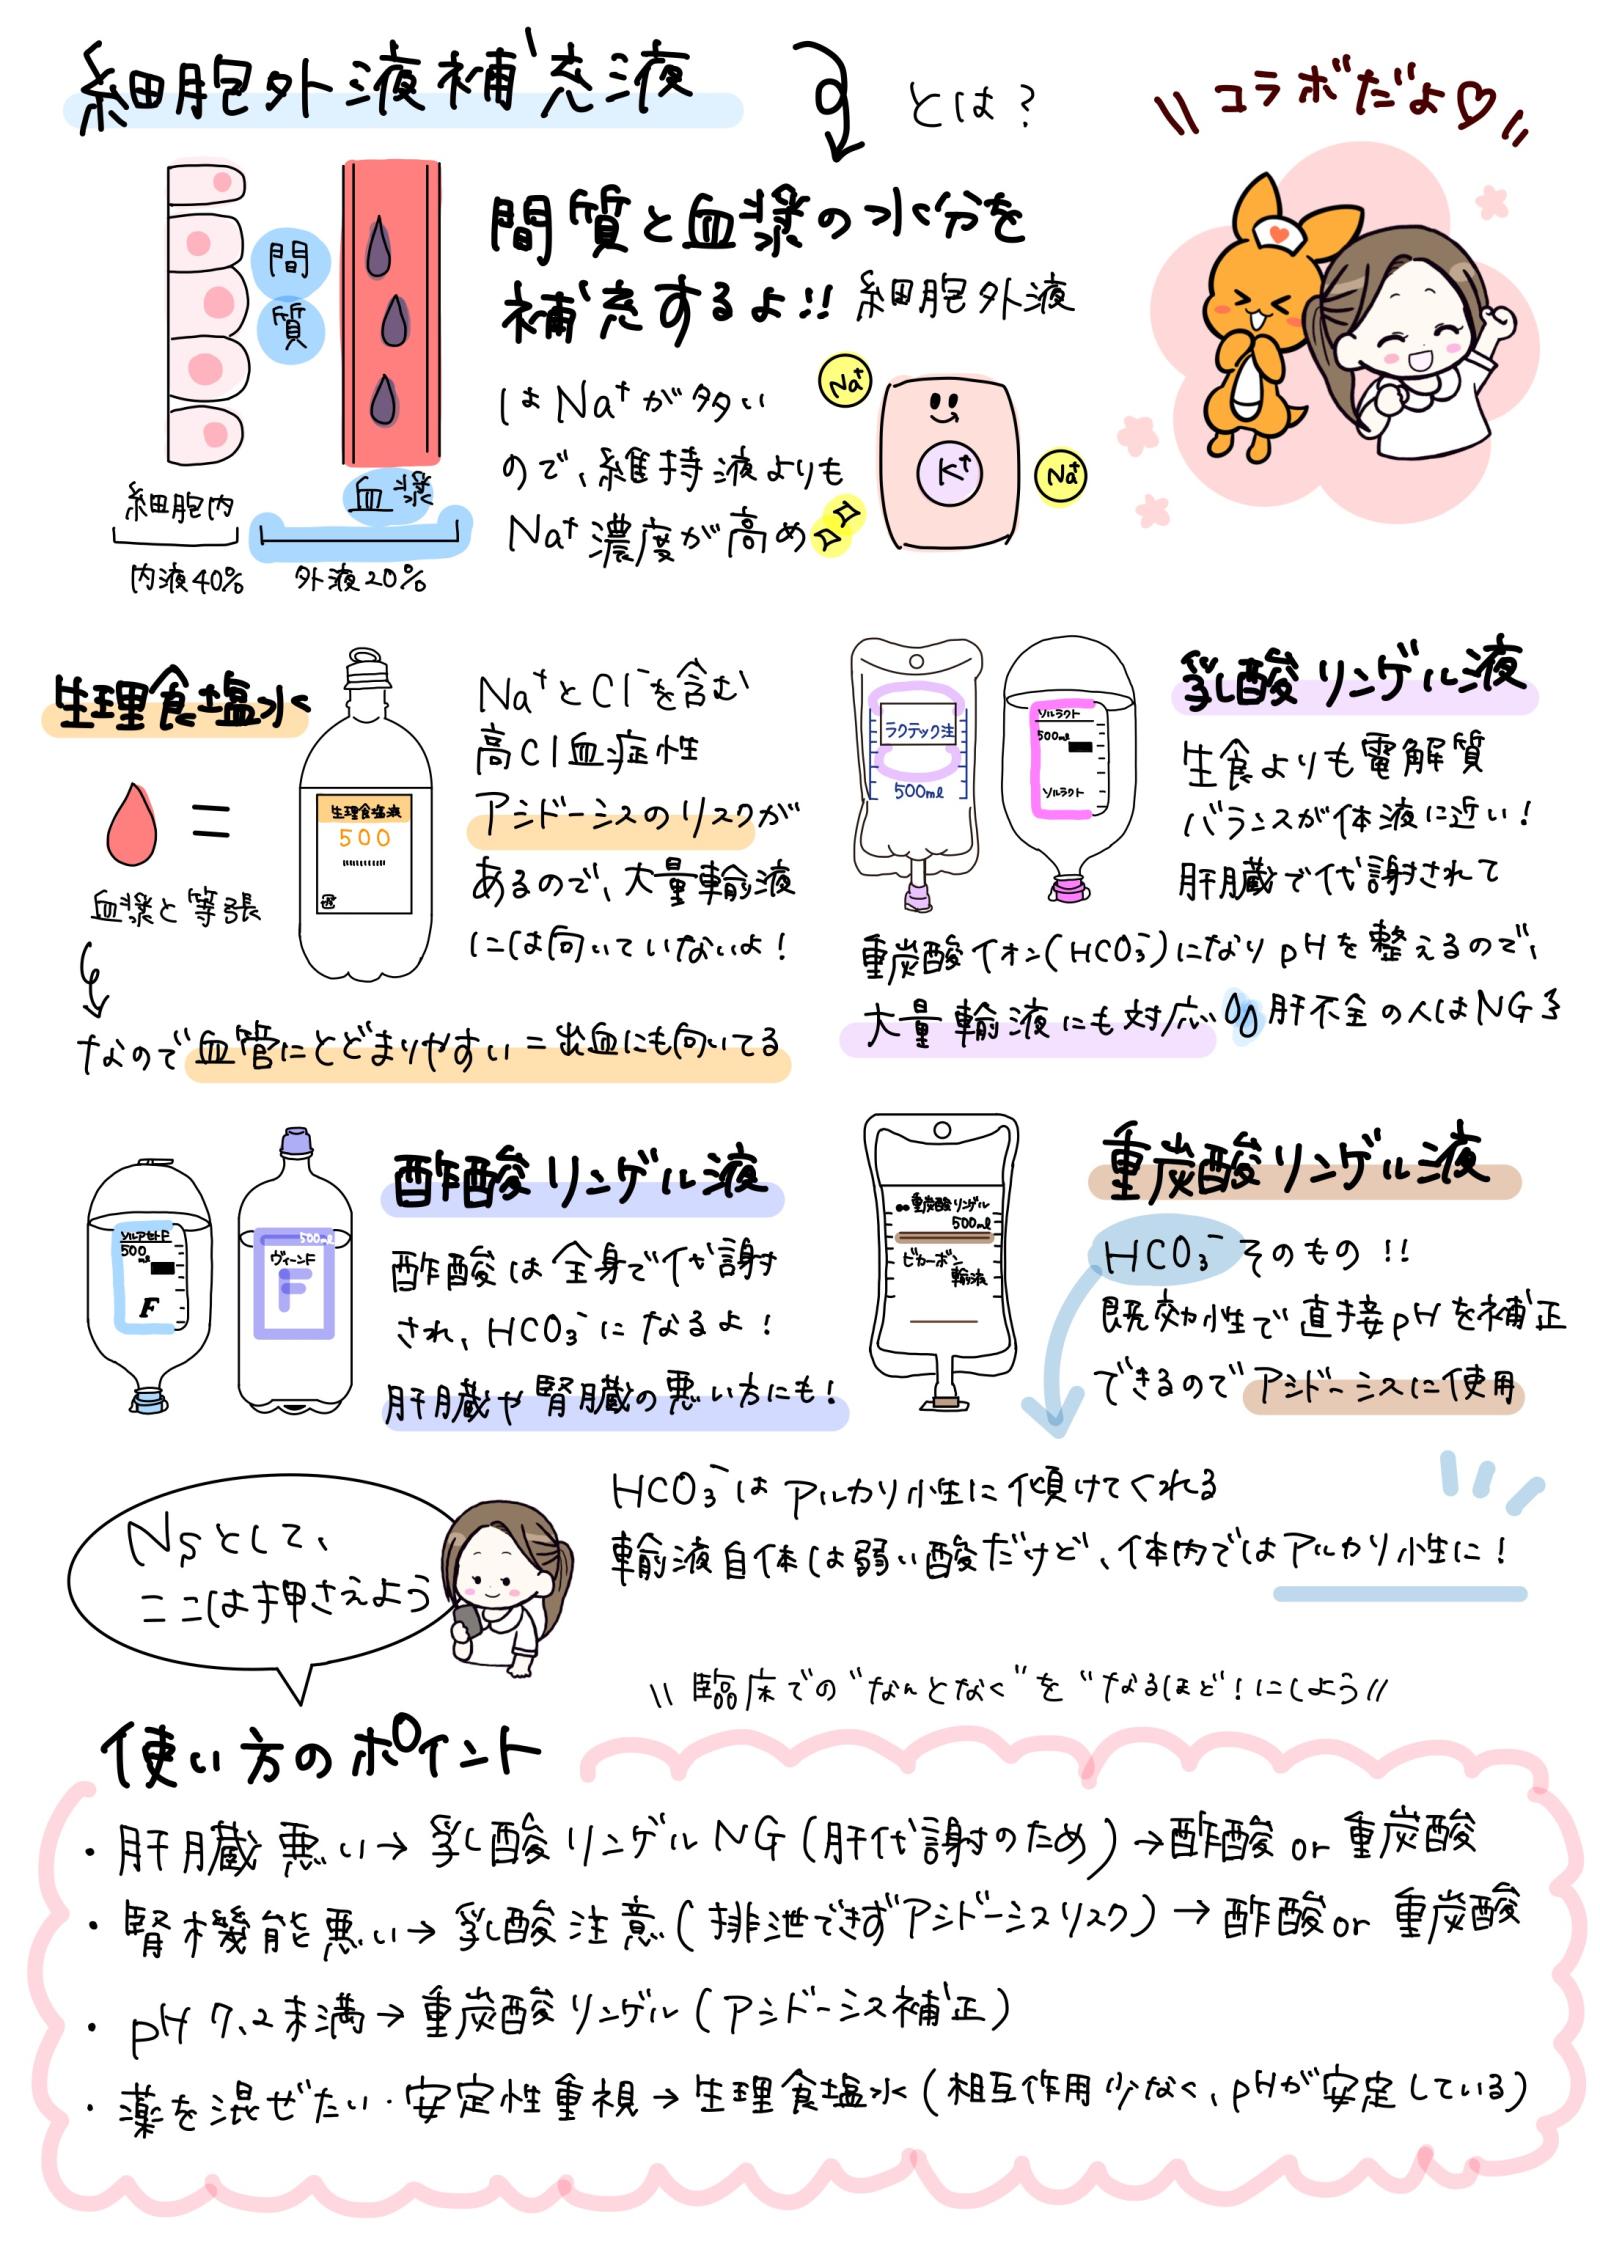 細胞外液補充液
とは？
コラボだよ♡
間質と血漿の水分を
補充するよ!! 細胞外液
はNa⁺が多い
ので、維持液よりも
Na⁺濃度が高め
間質
細胞内
血漿
内液40%
外液20%
Na⁺
K⁺
Na⁺
生理食塩水
=
血漿と等張
生理食塩液
500
Na⁺とCl⁻を含む
高Cl血症性
アシドーシスのリスクが
あるので、大量輸液
には向いていないよ！
なので血管にとどまりやすい=出血にも向いてる
ラクテック注
500ml
ソルラクト
500ml
ソルラクト
乳酸リンゲル液
生食よりも電解質
バランスが体液に近い！
肝臓で代謝されて
重炭酸イオン(HCO₃⁻)になりpHを整えるので、
大量輸液にも対応 肝不全の人はNG
ソルアセトF
500ml
F
500ml
ヴィーンF
F
酢酸リンゲル液
酢酸は全身で代謝
され、HCO₃⁻になるよ！
肝臓や腎臓の悪い方にも！
重炭酸リンゲル
500ml
ビカーボン
輸液
重炭酸リンゲル液
HCO₃⁻そのもの!!
既効性で直接pHを補正
できるのでアシドーシスに使用
HCO₃⁻はアルカリ性に傾けてくれる
輸液自体は弱い酸だけど、体内ではアルカリ性に！
Nsとして、
ここは押さえよう
\\ 臨床での"なんとなく"を"なるほど！にしよう //
使い方のポイント
・肝臓悪い→乳酸リンゲルNG(肝代謝のため)→酢酸or重炭酸
・腎機能悪い→乳酸注意(排泄できずアシドーシスリスク)→酢酸or重炭酸
・pH7.2未満→重炭酸リンゲル(アシドーシス補正)
・薬を混ぜたい・安定性重視→生理食塩水(相互作用少なく、pHが安定している)